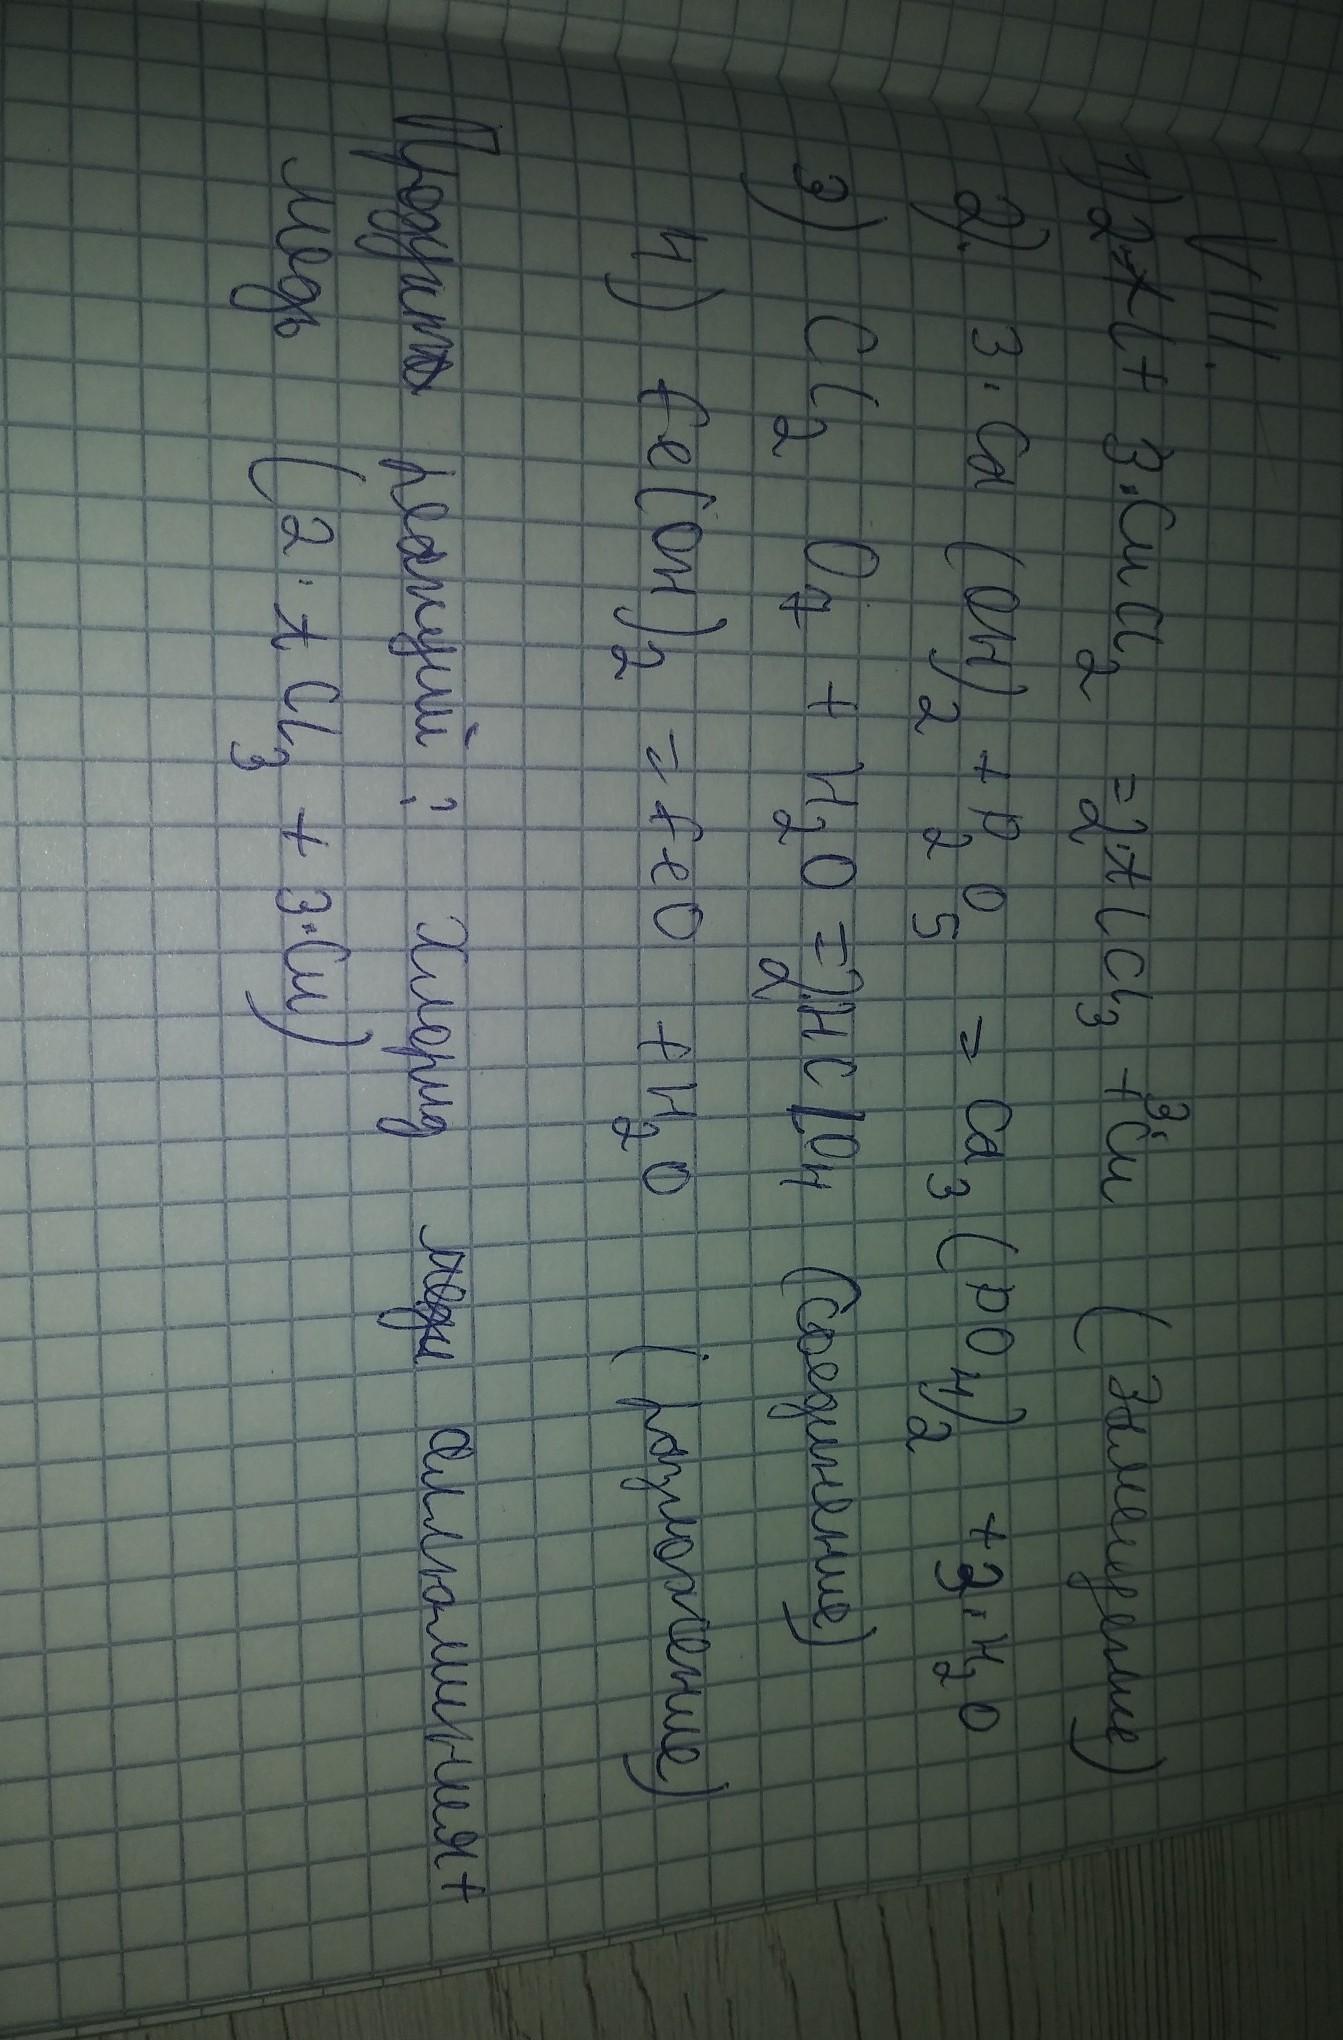 VIII.
1) 2·Al + 3·CuCl₂ = 2·AlCl₃ + 3·Cu (Замещение)
2). 3·Ca(OH)₂ + P₂O₅ = Ca₃(PO₄)₂ + 3·H₂O
3) Cl₂O₇ + H₂O = 2·HClO₄ (Соединение)
4) Fe(OH)₂ = FeO + H₂O (разложение)
Продукты реакций: Хлорид меди аллюминия+
медь (2·AlCl₃ + 3·Cu)